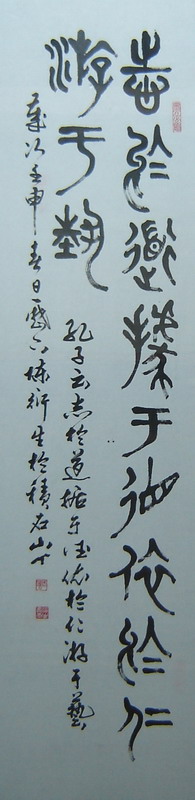 志於道據于德依於仁
游于藝
孔子云志於道據于德依於仁游于藝
歲次壬申春日歷下衍生於積石山